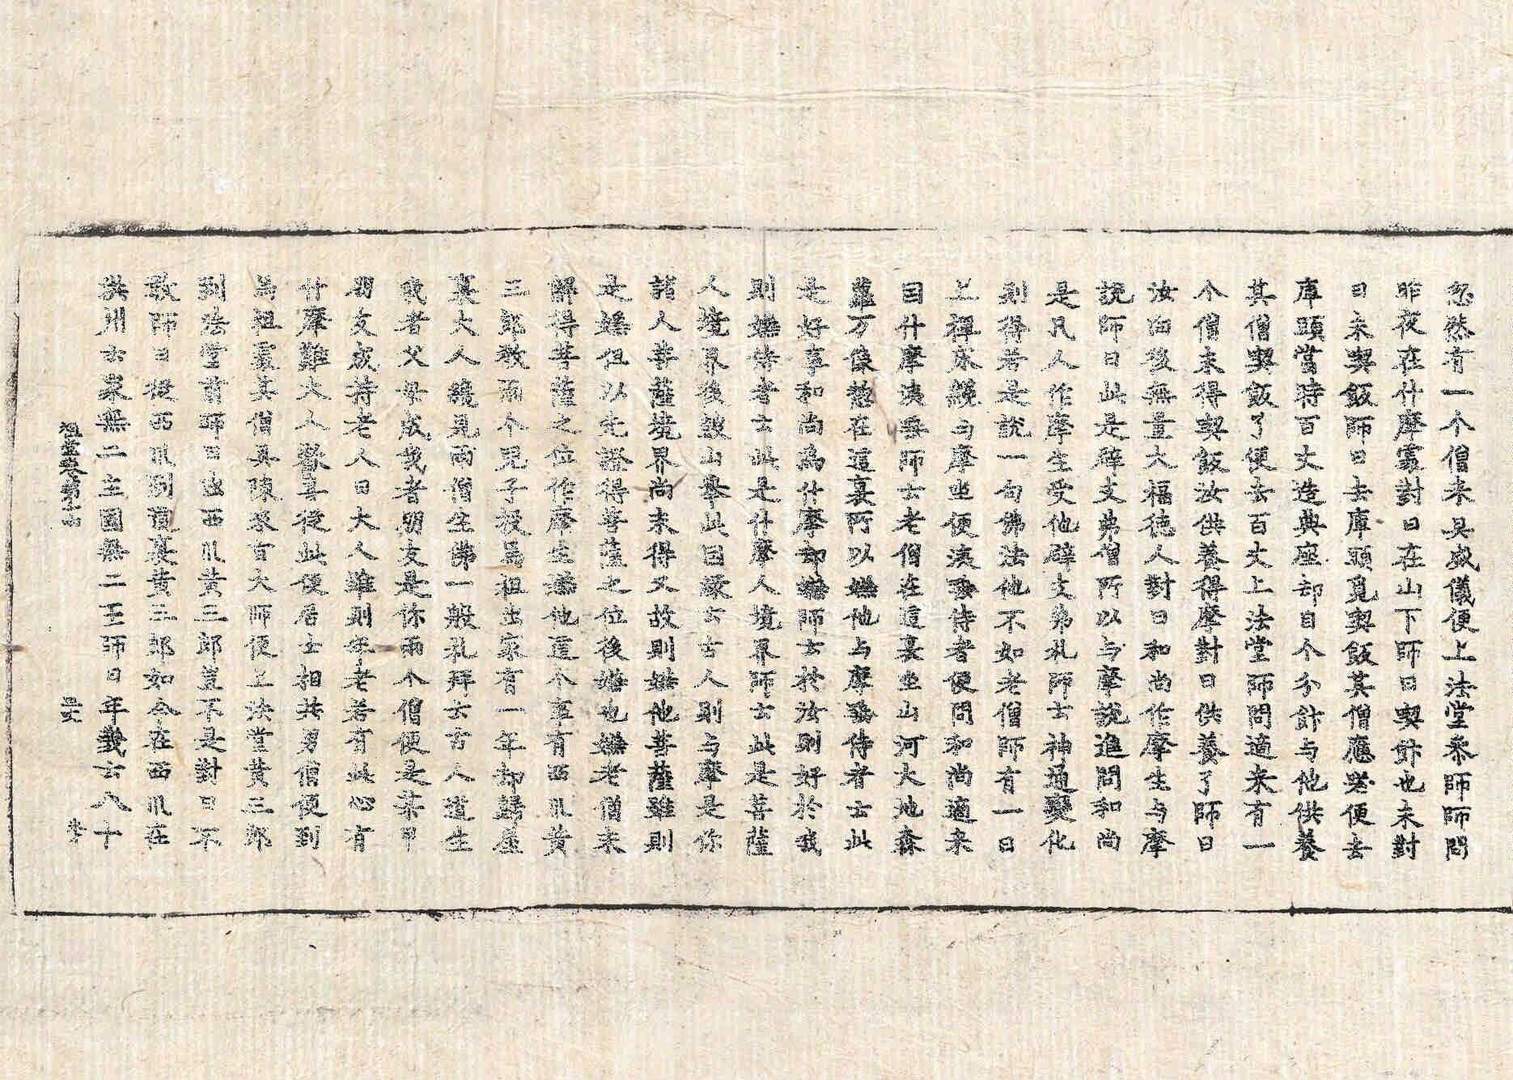 忽然有一个僧來具威儀便上法堂参師師問
昨夜在什摩處對曰在山下師曰喫飰也未對
曰未喫飯師曰去庫頭覓喫飯其僧應喏便去
庫頭當時百丈造典座却自个分飰与他供養
其僧喫飯了便去百丈上法堂師問適来有一
个僧未得喫飯汝供養得摩對曰供養了師曰
汝向後無量大福德人對曰和尚作摩生与摩
說師曰此是辟支弗僧所以与摩說進問和尚
是凡人作摩生受他辟支弗礼師云神通變化
則得若是說一句佛法他不如老僧師有一日
上禪床纔与摩坐便洟唾侍者便問和尚適来
因什摩洟唾師云老僧在這裏坐山河大地森
羅万像惣在這裏所以嫌他与摩唾侍者云此
是好事和尚為什摩却嫌師云於汝則好於我
則嫌侍者云此是什摩人境界師云此是菩薩
人境界後鼓山舉此因緣云古人則与摩是你
諸人菩薩境界尚未得又故則嫌他菩薩雖則
是嫌但以先證得菩薩之位後嫌也嫌老僧未
解得菩薩之位作摩生嫌他這个事有西川黃
三郎教兩个兒子投馬祖出家有一年却歸屋
裏大人纔見兩僧生佛一般礼拜云古人道生
我者父母成我者朋友是你兩个僧便是某甲
朋友成持老人曰大人雖則年老若有此心有
什摩難大人歡喜從此便居士相共男僧便到
馬祖處其僧具陳來旨大師便上法堂黃三郎
到法堂前師曰咄西川黃三郎豈不是對曰不
敢師曰從西川到這裏黃三郎如今在西川在
洪州云家無二主國無二王師曰年幾云八十
祖堂集第十四